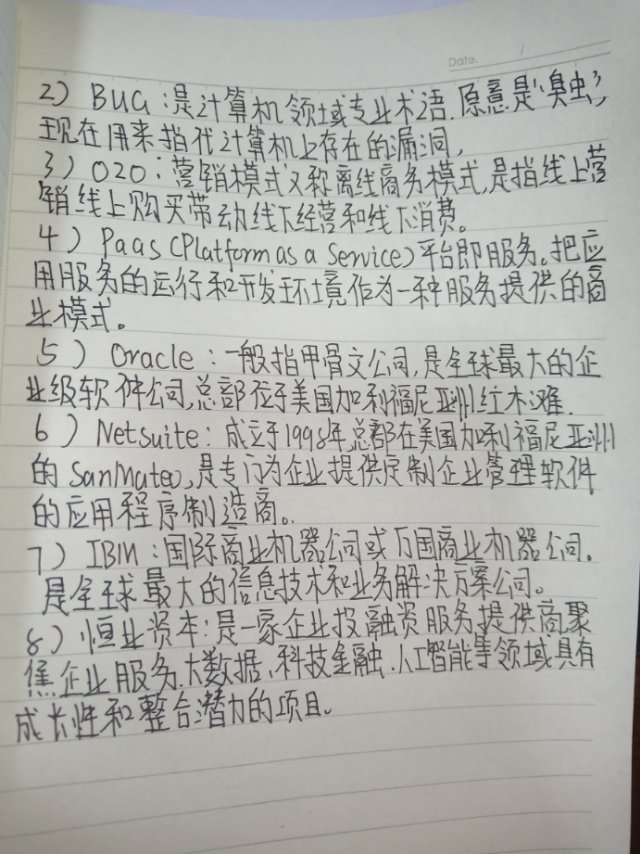 Date. /
2) BUG：是计算机领域专业术语.原意是“臭虫”,
现在用来指代计算机上存在的漏洞,
3) O2O：营销模式又称离线商务模式,是指线上营
销线上购买带动线下经营和线下消费。
4) Paas (Platform as a Service)平台即服务。把应
用服务的运行和开发环境作为一种服务提供的商
业模式。
5) Oracle：一般指甲骨文公司,是全球最大的企
业级软件公司,总部位于美国加利福尼亚州红木滩.
6) Netsuite：成立于1998年,总部在美国加利福尼亚州
的SanMateo,是专门为企业提供定制企业管理软件
的应用程序制造商。
7) IBM：国际商业机器公司或万国商业机器公司.
是全球最大的信息技术和业务解决方案公司。
8) 恒业资本：是一家企业投融资服务提供商,聚
焦企业服务.大数据、科技金融.人工智能等领域具有
成长性和整合潜力的项目。